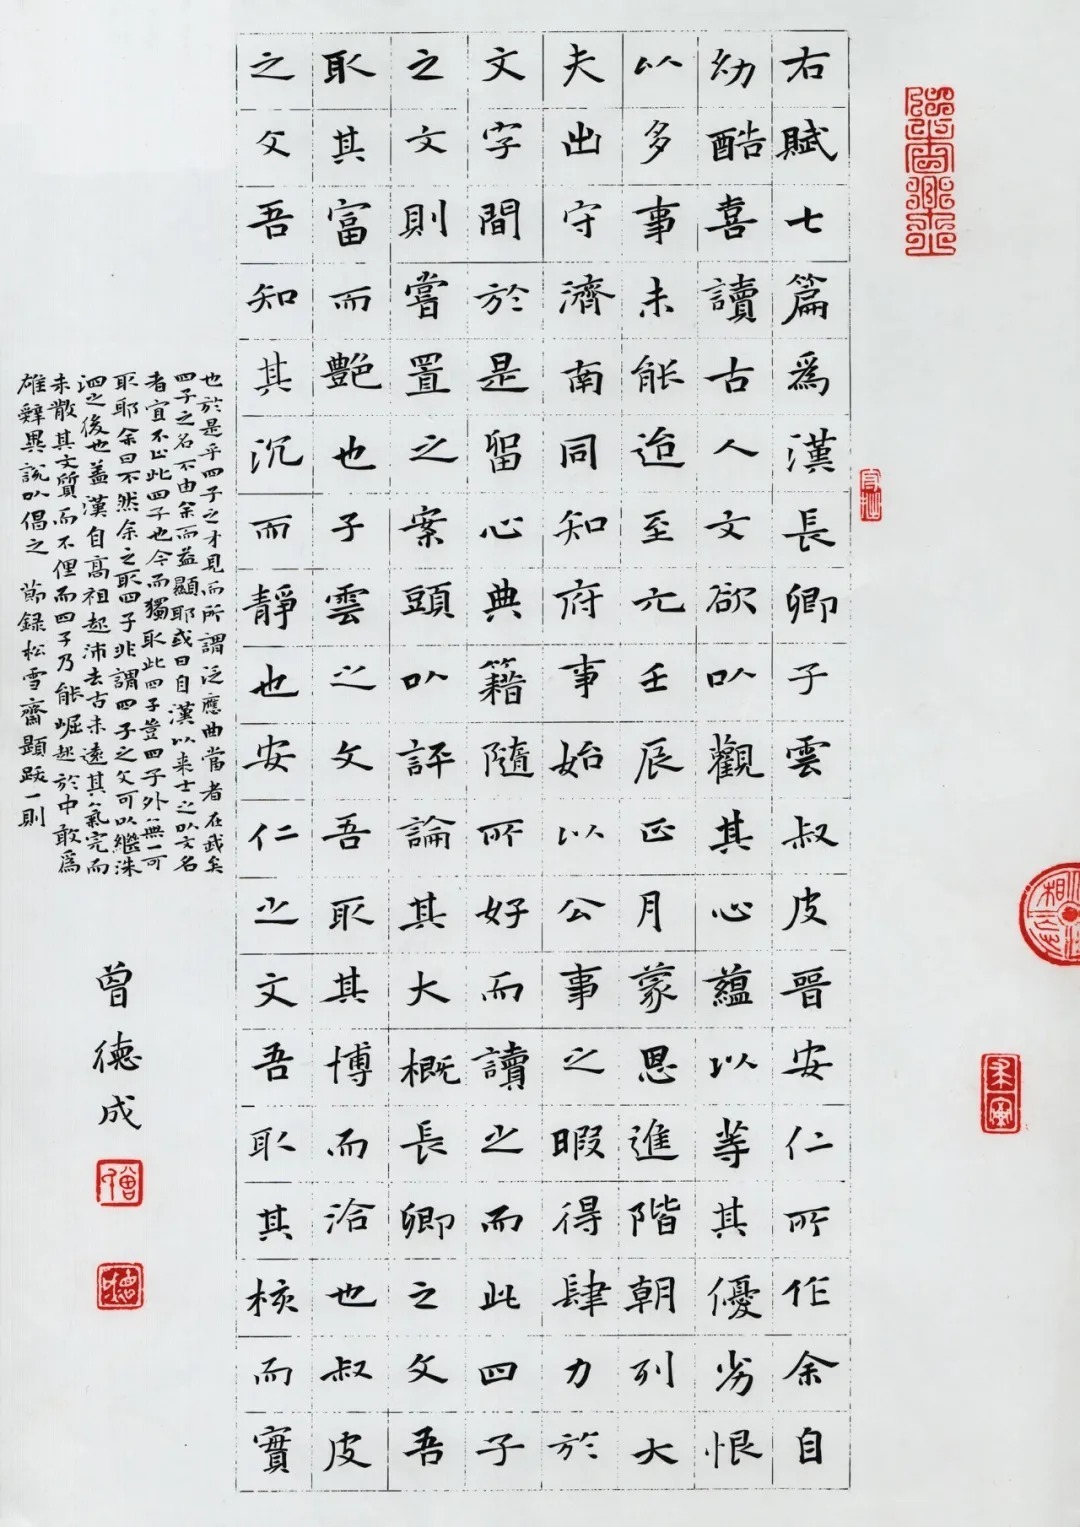 右賦七篇爲漢長卿子雲叔皮晉安仁所作余自
幼酷喜讀古人文欲以觀其心蘊以等其優劣恨
以多事未能迨至元壬辰正月蒙恩進階朝列大
夫出守濟南同知府事始以公事之暇得肆力於
文字間於是留心典籍隨所好而讀之而此四子
之文則嘗置之案頭以評論其大概長卿之文吾
取其富而艷也子雲之文吾取其博而洽也叔皮
之文吾知其沉而靜也安仁之文吾取其核而實
也於是乎四子之才見而所謂泛應曲當者在武矣
四子之名不由余而益顯耶或曰自漢以来士之以文名
者宜不止此四子也今而獨取此四子豈四子外無一可
取耶余曰不然余之取四子非謂四子之文可以繼洙
泗之後也蓋漢自高祖起沛去古未遠其氣完而
未散其文質而不俚而四子乃能崛起於中敢爲
雄辭異説以倡之 節錄松雪齋題跋一則
曾德成